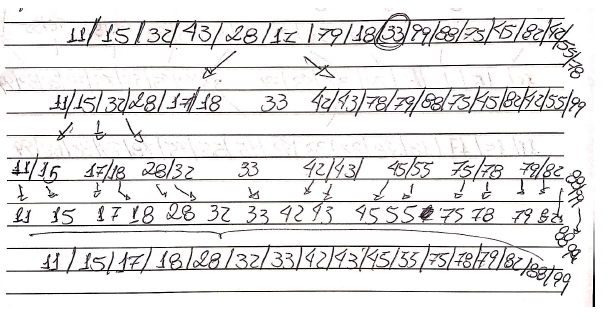 11/15/32/43/28/17/79/18/33/99/88/75/45/82/42/55/78
11/15/32/28/17/18 33 42/43/78/79/88/75/45/82/42/55/99
11/15 17/18 28/32 33 42/43/ 45/55 75/78 79/82 88/99
11 15 17 18 28 32 33 42 43 45 55 75 78 79 82 88 99
11/15/17/18/28/32/33/42/43/45/55/75/78/79/82/88/99